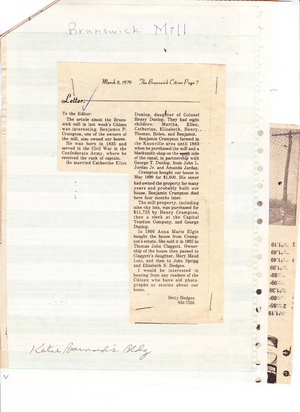 Brunswick Mill
March 8, 1979 The Brunswick Citizen Page 7
Letter:
To the Editor:
The article about the Bruns-
wick mill in last week's Citizen
was interesting. Benjamin P.
Crampton, one of the owners of
the mill, also owned our house.
He was born in 1835 and
served in the Civil War in the
Confederate Army, where he
received the rank of captain.
He married Catherine Eliza
Dunlop, daughter of Colonel
Henry Dunlop. They had eight
children: Martha, Ellen,
Catherine, Elizabeth, Henry,
Thomas, Helen, and Benjamin.
Benjamin Crampton farmed in
the Knoxville area until 1883
when he purchased the mill and a
blacksmith shop on the south side
of the canal, in partnership with
George P. Dunlop, from John L.
Jordan Jr. and Amanda Jordan.
Crampton bought our house in
May 1889 for $1,600. His sister
had owned the property for many
years and probably built our
house. Benjamin Crampton died
here four months later.
The mill property, including
nine city lots, was purchased for
$11,725 by Henry Crampton,
then a clerk at the Capital
Traction Company, and George
Dunlop.
In 1900 Anna Marie Elgin
bought the house from Cramp-
ton's estate. She sold it in 1905 to
Thomas John Claggett. Owner-
ship of the house then passed to
Claggett's daughter, Mary Maud
Lutz, and then to John Spring
and Elizabeth S. Hedges.
I would be interested in
hearing from any readers of the
Citizen who have old photo-
graphs or stories about our
home.
Betty Hedges
Katie Barnard's Bldg